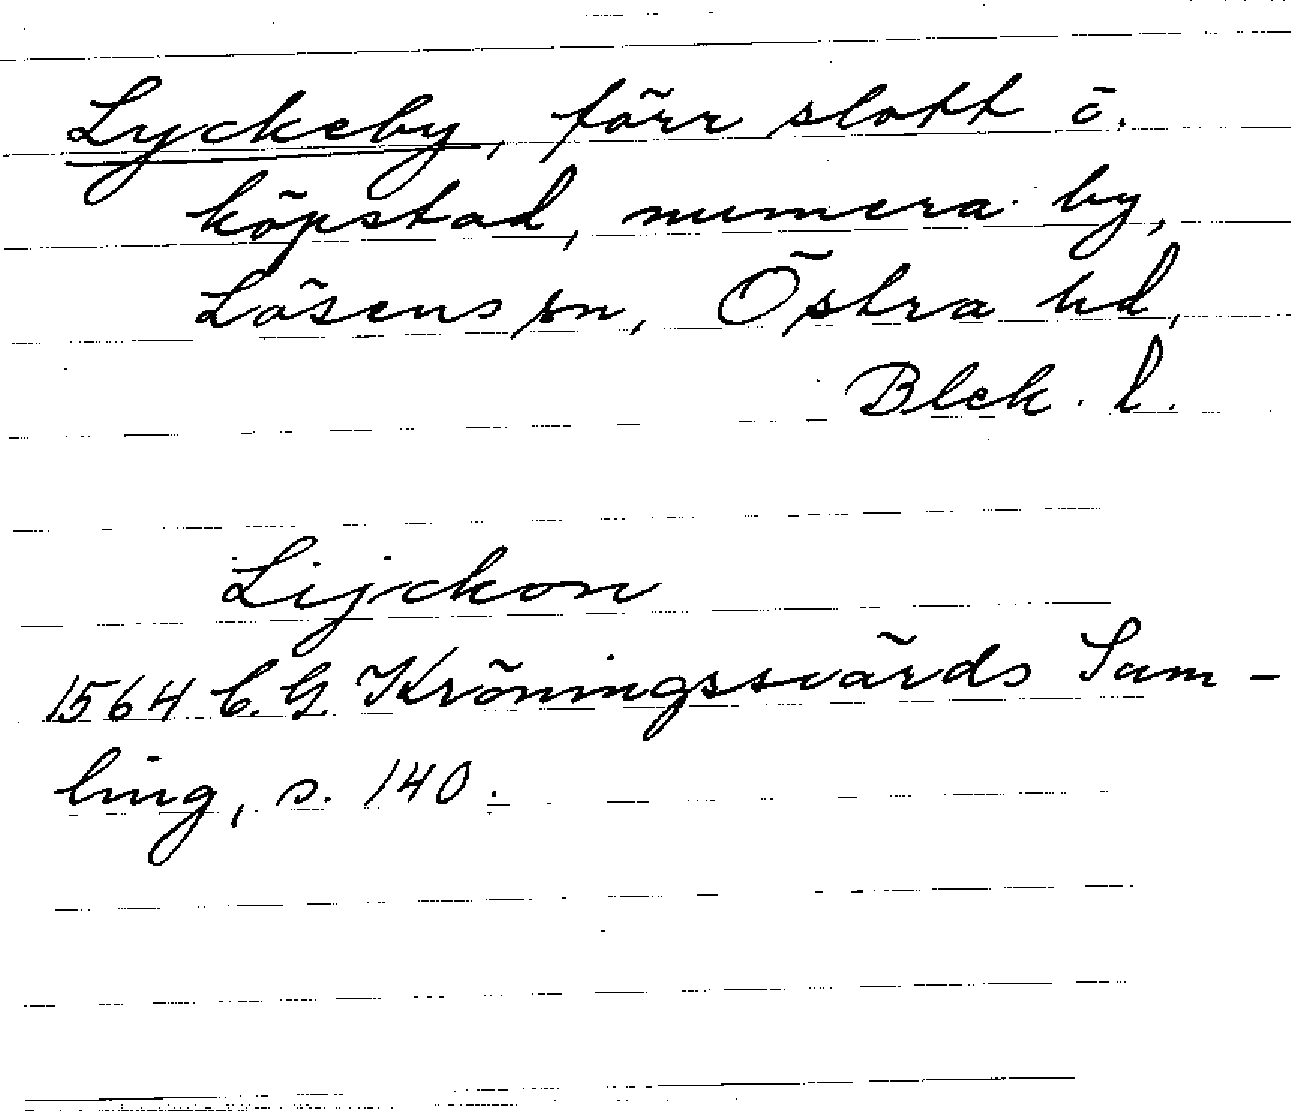 Lyckeby, förr slott o.
köpstad, numera by,
Lösens sn, Östra hd,
Blek. l.
Lijckon
1564 C. G. Kröningssvärds Sam-
ling, s. 140.